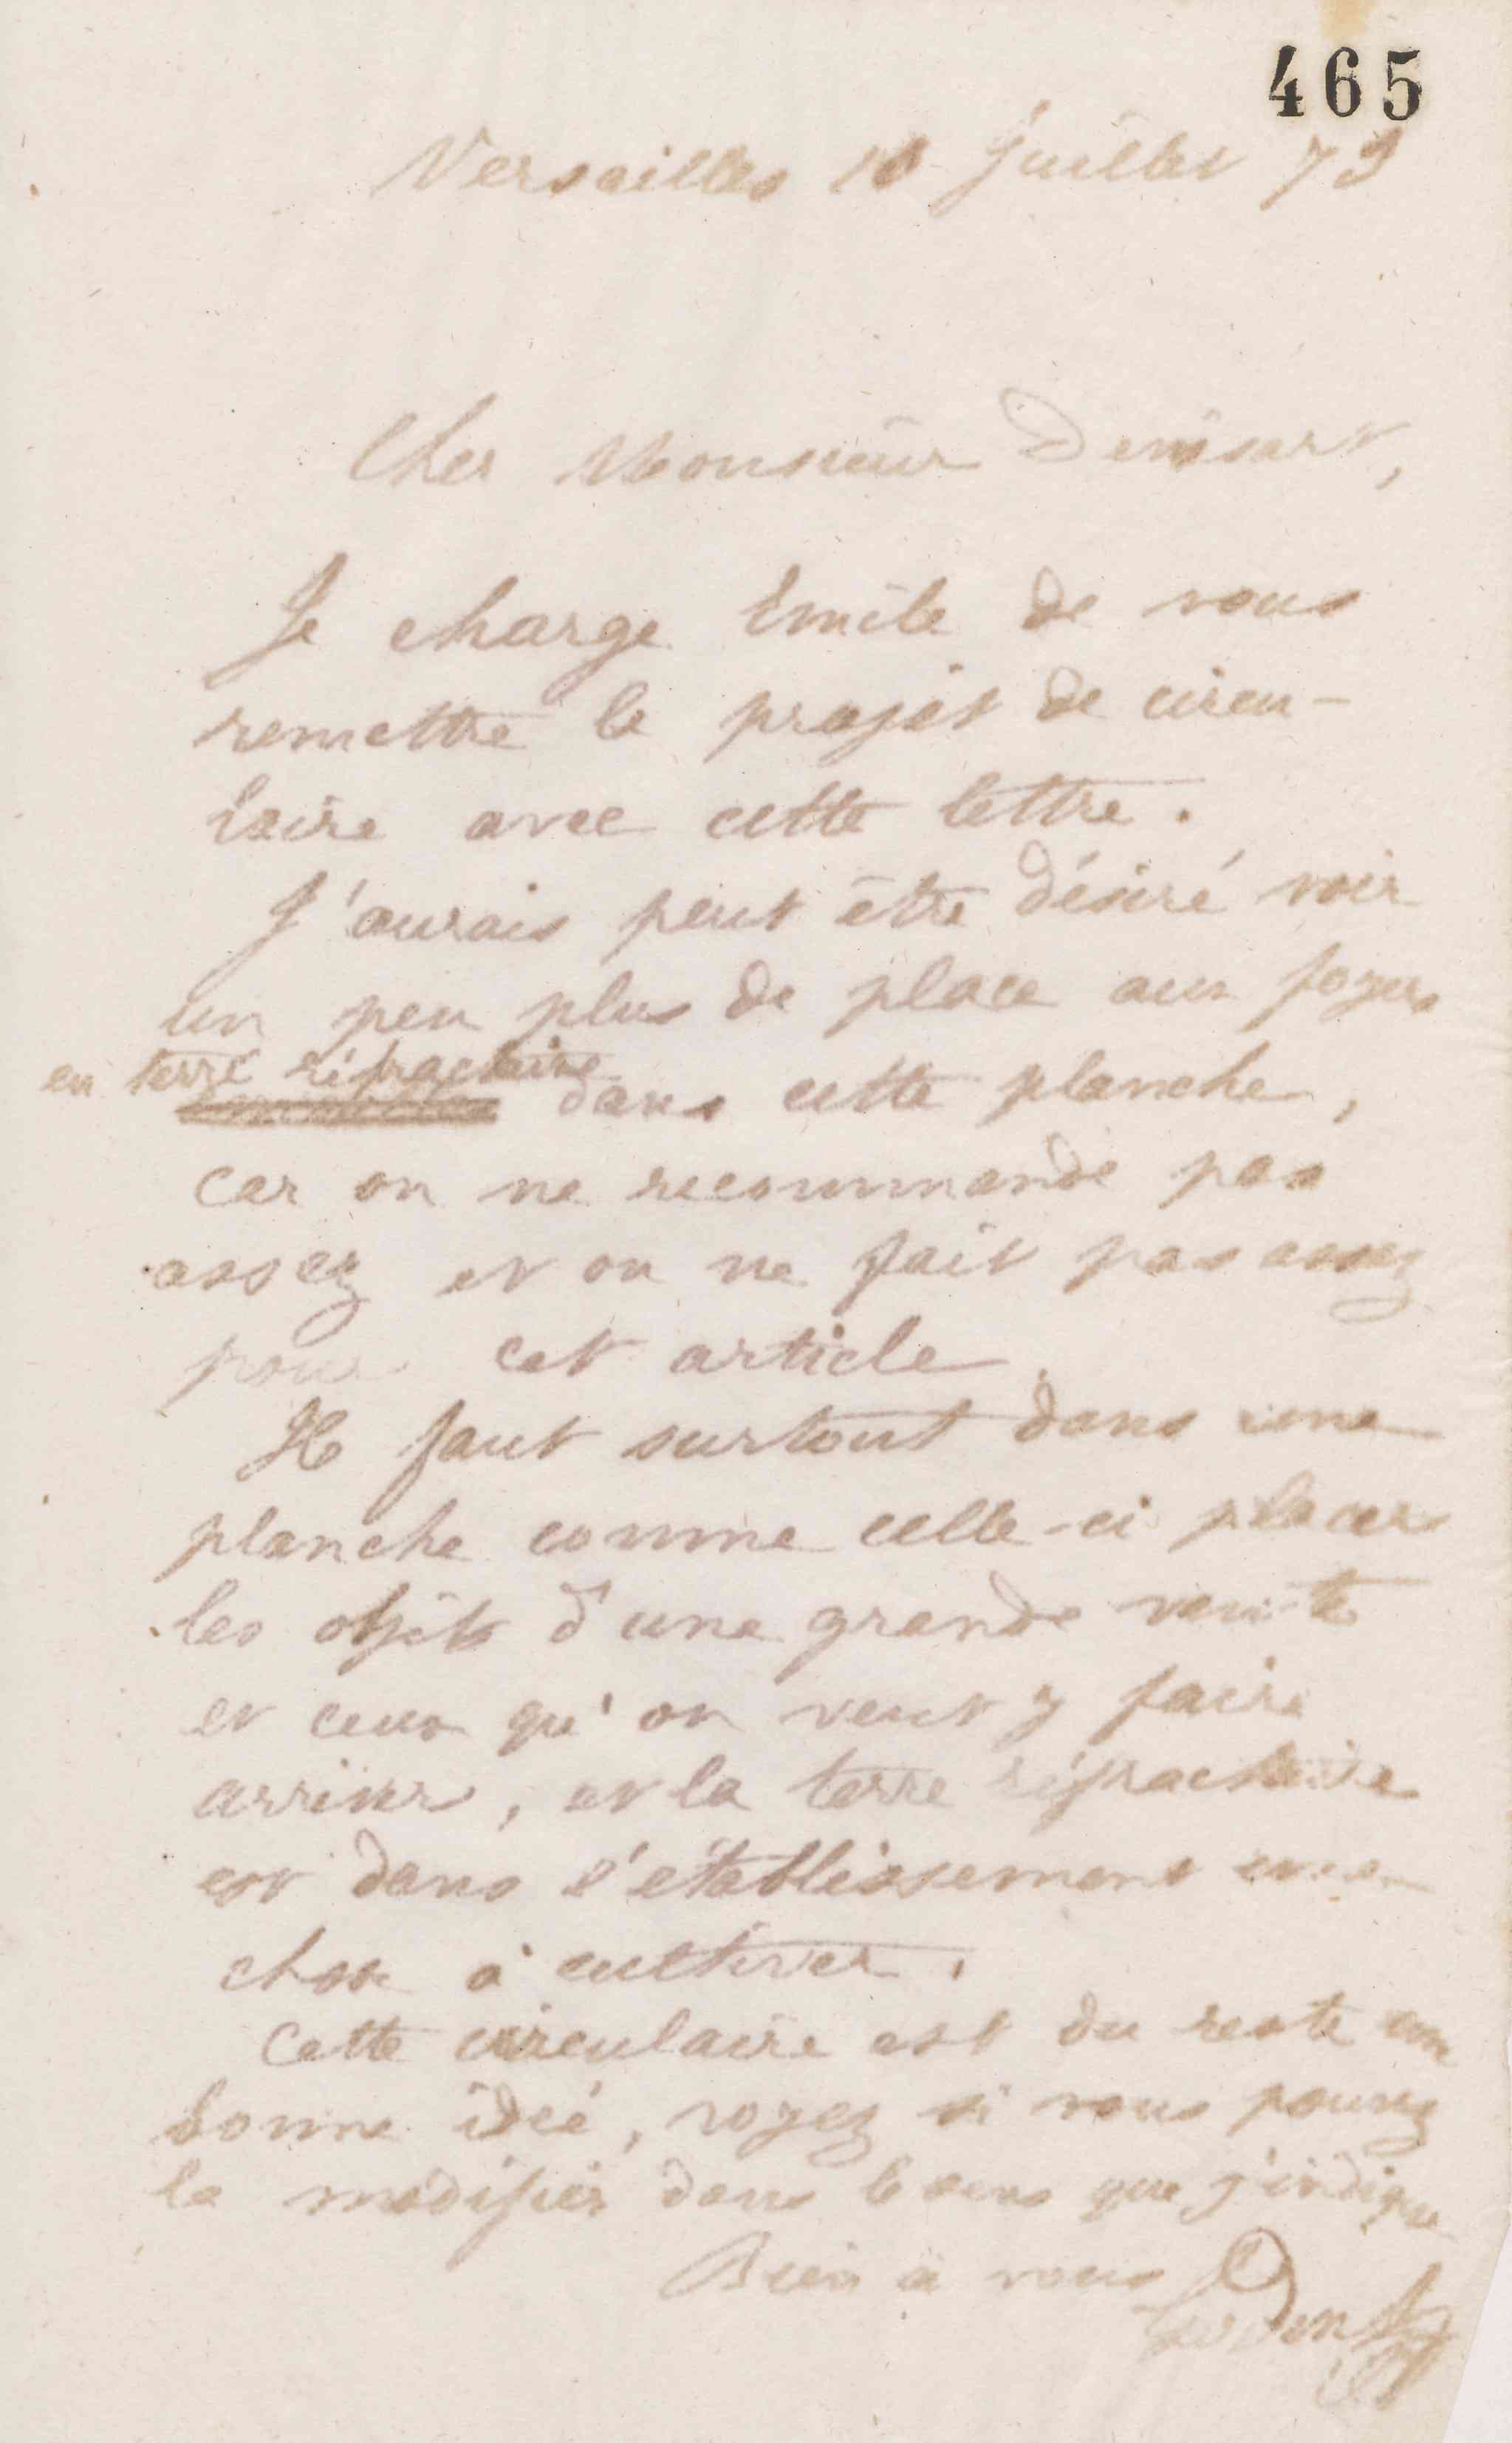 465
Versailles 10 Juillet 73
Cher Monsieur Denisart,
Je charge Emile de vous
remettre le projet de circu-
laire avec cette lettre.
J'aurais peut être désiré voir
un peu plus de place aux foyers
en terre réfractaire
dans cette planche,
car on ne recommande pas
assez et on ne fait pas assez
pour cet article.
Il faut surtout dans une
planche comme celle-ci placer
les objets d'une grande vente
et ceux qu'on veut y faire
arriver, et la terre réfractaire
est dans l'établissement une
chose à cultiver.
Cette circulaire est du reste une
bonne idée, voyez si vous pouvez
la modifier dans le sens que j'indique
Bien à vous
Godin